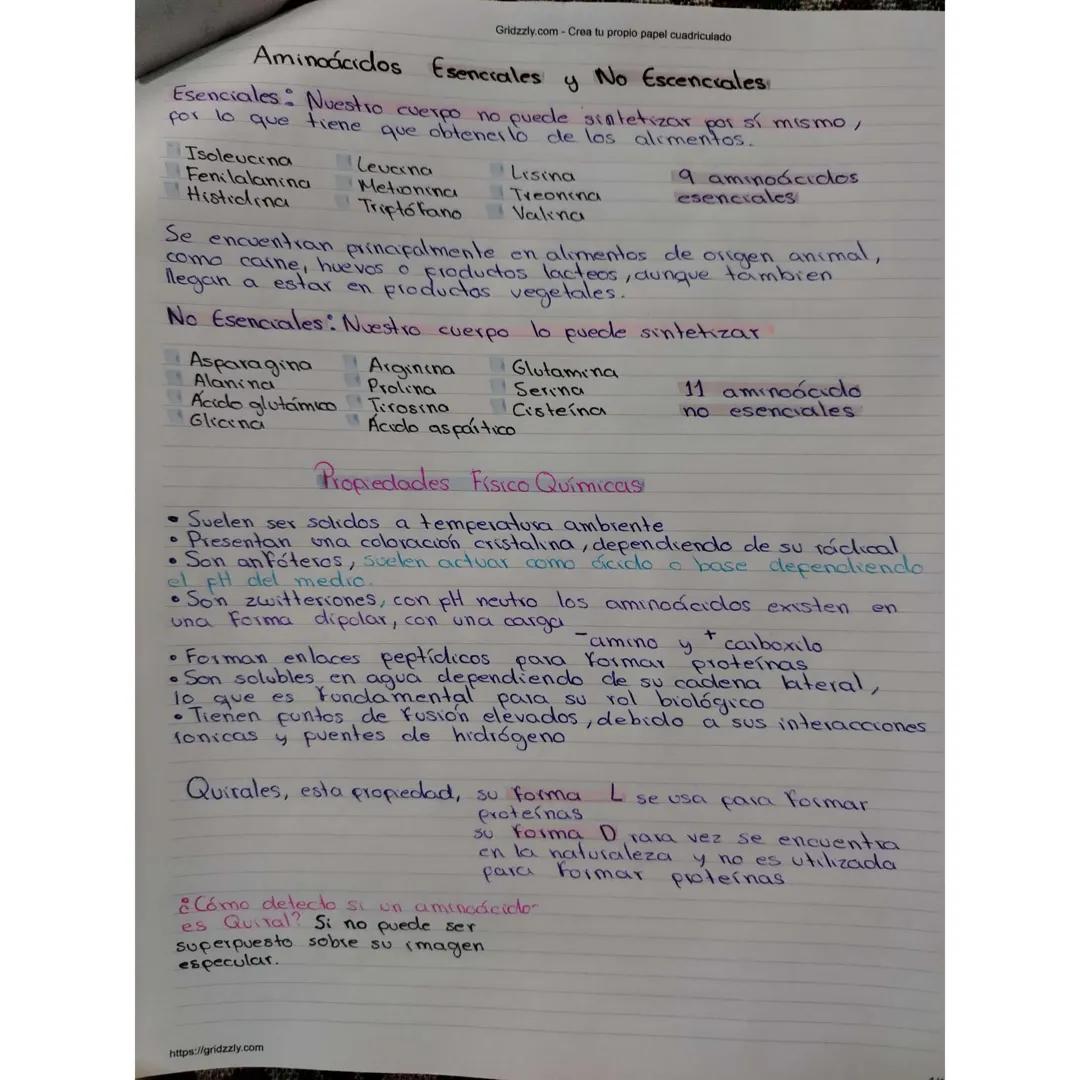 Gridzzly.com - Crea tu propio papel cuadriculado
Aminoácidos Esenciales y No Escenciales
Esenciales: Nuestro cuerpo no puede sintetizar por sí mismo,
por lo que tiene que obtenerlo de los alimentos.
Isoleucina Leucina Lisina 9 aminoácidos
Fenilalanina Metionina Treonina esenciales
Histidina Triptófano Valina
Se encuentran principalmente en alimentos de origen animal,
como carne, huevos o productos lacteos, aunque tambien
llegan a estar en productos vegetales.
No Esenciales: Nuestro cuerpo lo puede sintetizar
Asparagina Arginina Glutamina
Alanina Prolina Serina 11 aminoácido
Ácido glutámico Tirosina Cisteína no esenciales
Glicina Ácido aspártico
Propiedades Físico Químicas
• Suelen ser solidos a temperatura ambiente
• Presentan una coloración cristalina, dependiendo de su rádical
• Son anfóteros, suelen actuar como ácido o base dependiendo
el pH del medio.
• Son zwitteriones, con pH neutro los aminoácidos existen en
una forma dipolar, con una carga
- amino y + carboxilo
• Forman enlaces peptídicos para formar proteínas
• Son solubles en agua dependiendo de su cadena lateral,
lo que es fundamental para su rol biológico
• Tienen puntos de fusión elevados, debido a sus interacciones
ionicas y puentes de hidrógeno
Quirales, esta propiedad, su forma L se usa para formar
proteínas
su forma D rara vez se encuentra
en la naturaleza y no es utilizada
para formar proteínas
¿Cómo detecto si un aminoácido
es Quiral? Si no puede ser
superpuesto sobre su imagen
especular.
https://gridzzly.com